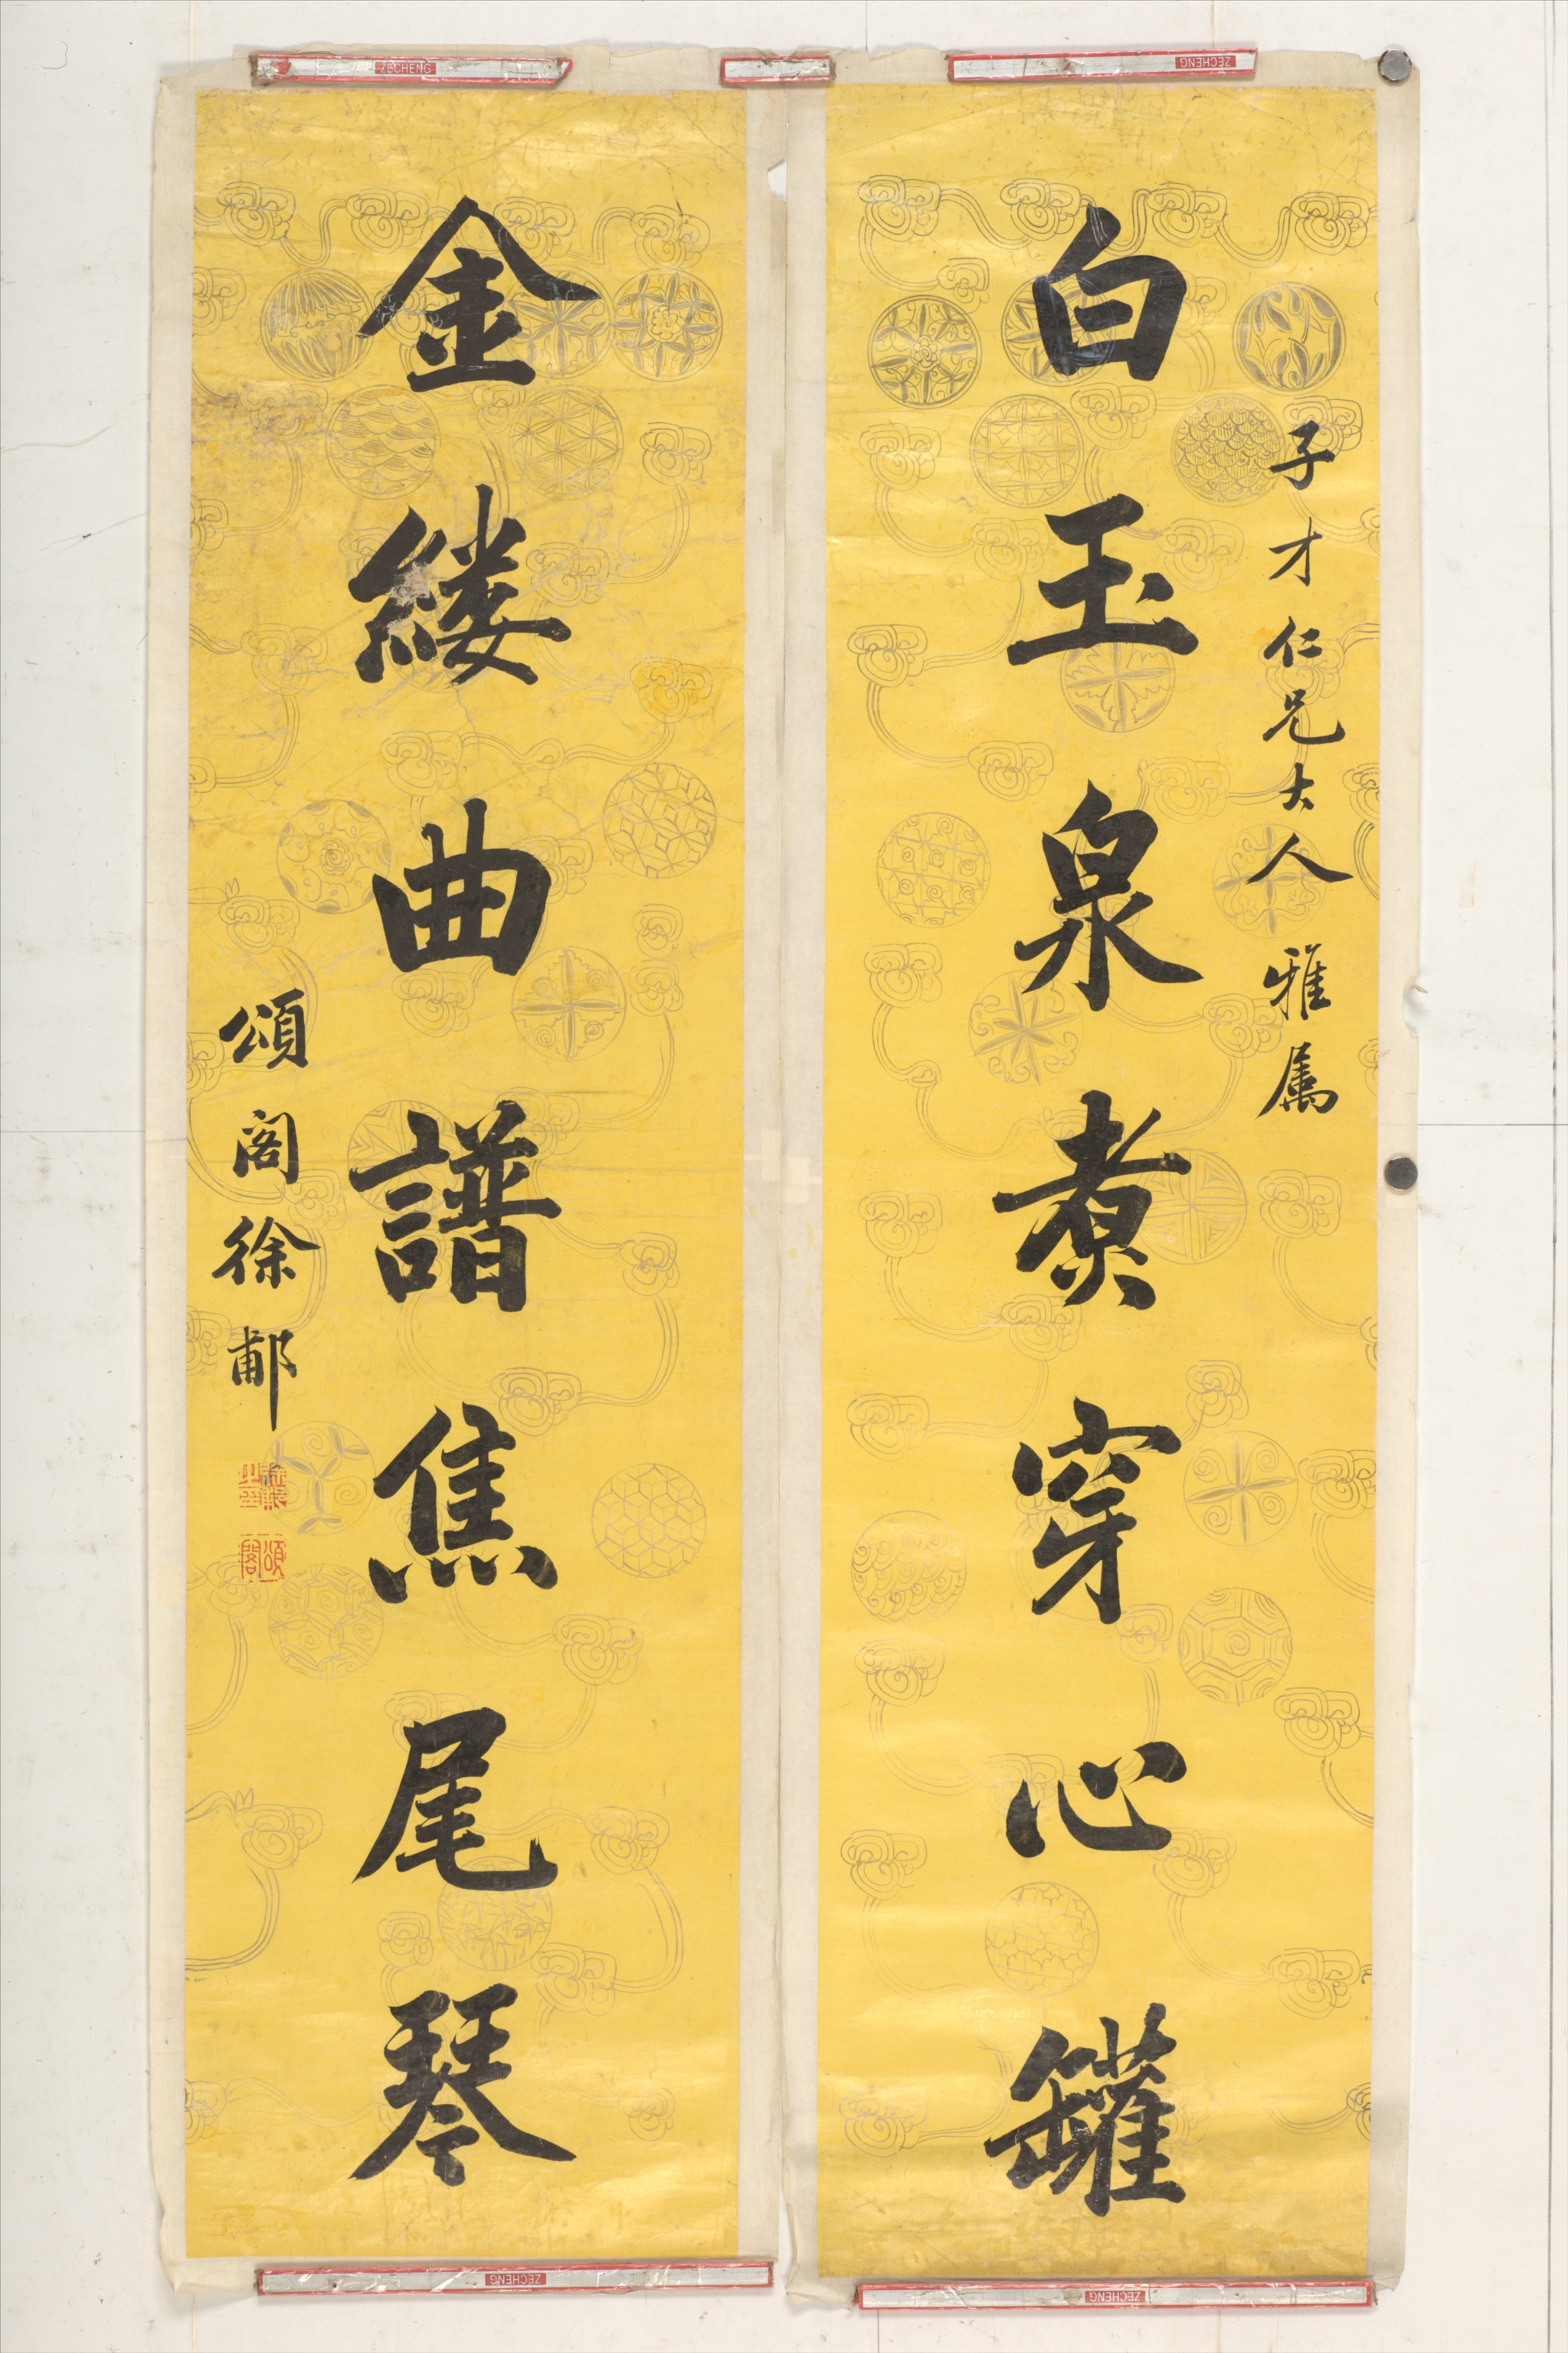 子才仁兄大人雅属
白玉泉煮穿心罐
金缕曲譜焦尾琴
頌閣徐郙
徐郙之印
頌閣
ZECHENG
ZECHENG
ZECHENG
ZECHENG